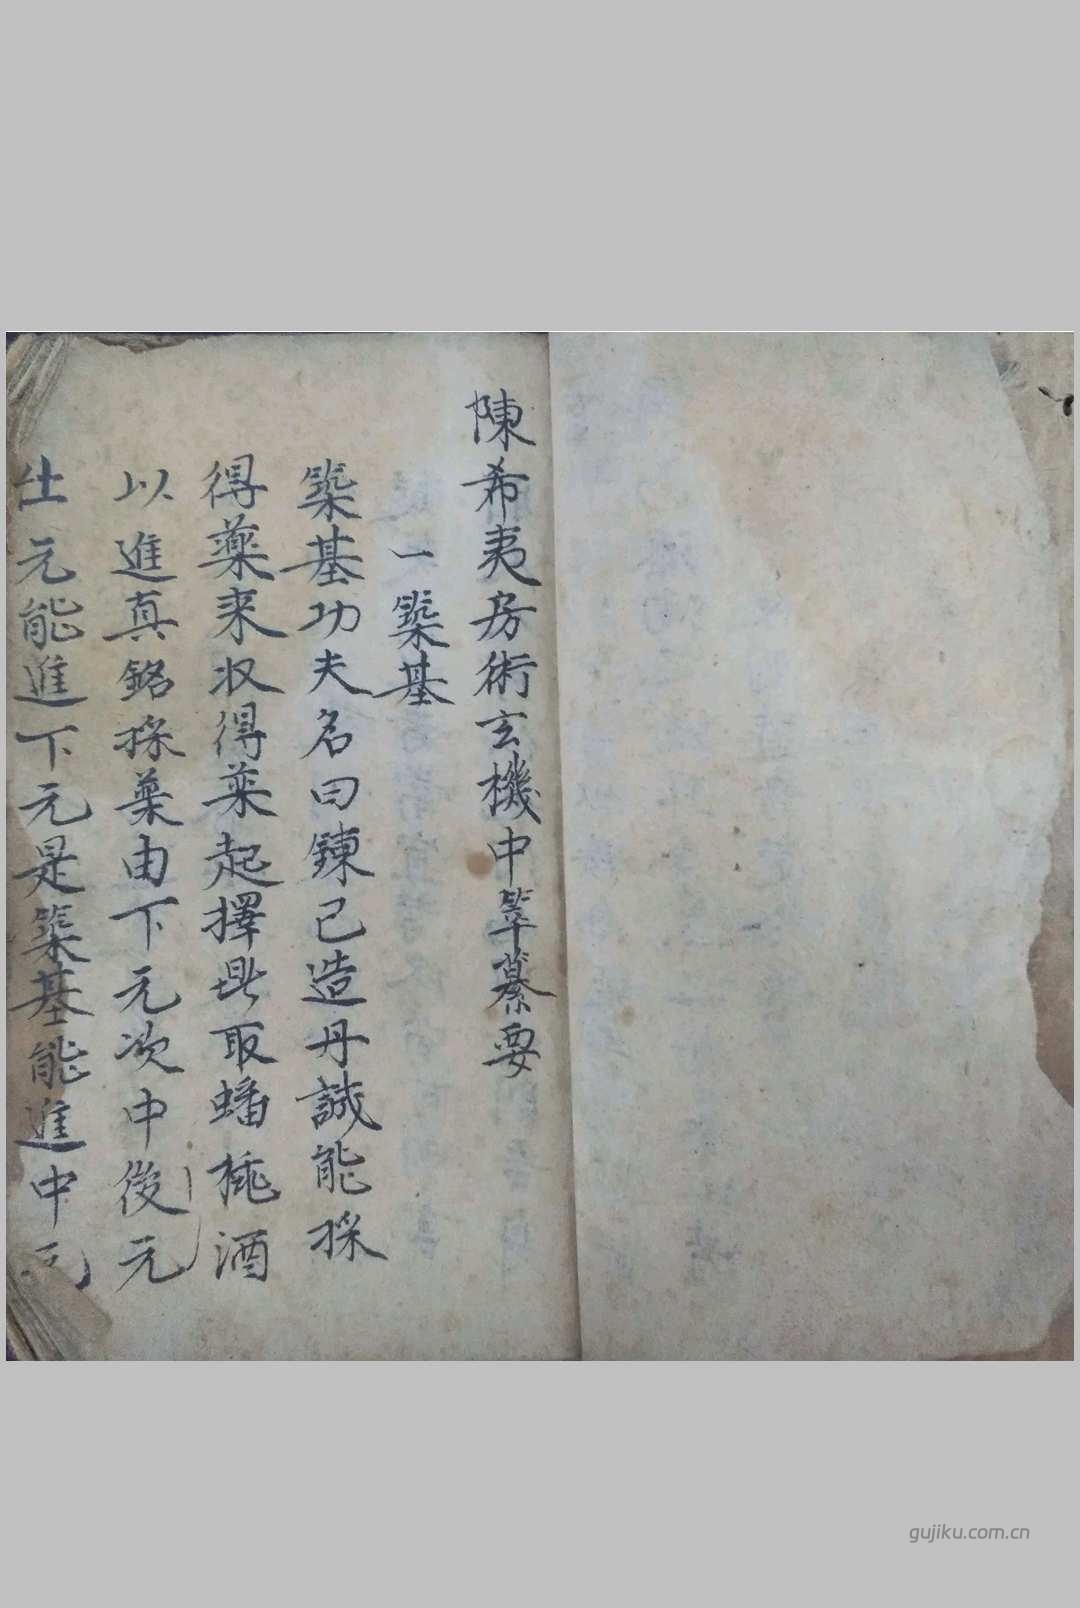 陳希夷房術玄機中箄纂要
一築基
築基功夫名曰鍊己造丹誠能採
得藥来収得薬起擇此取蟠桃酒
以進真鉛採藥由下元次中後元
仕元能進下元是築基能進中元
gujiku.com.cn